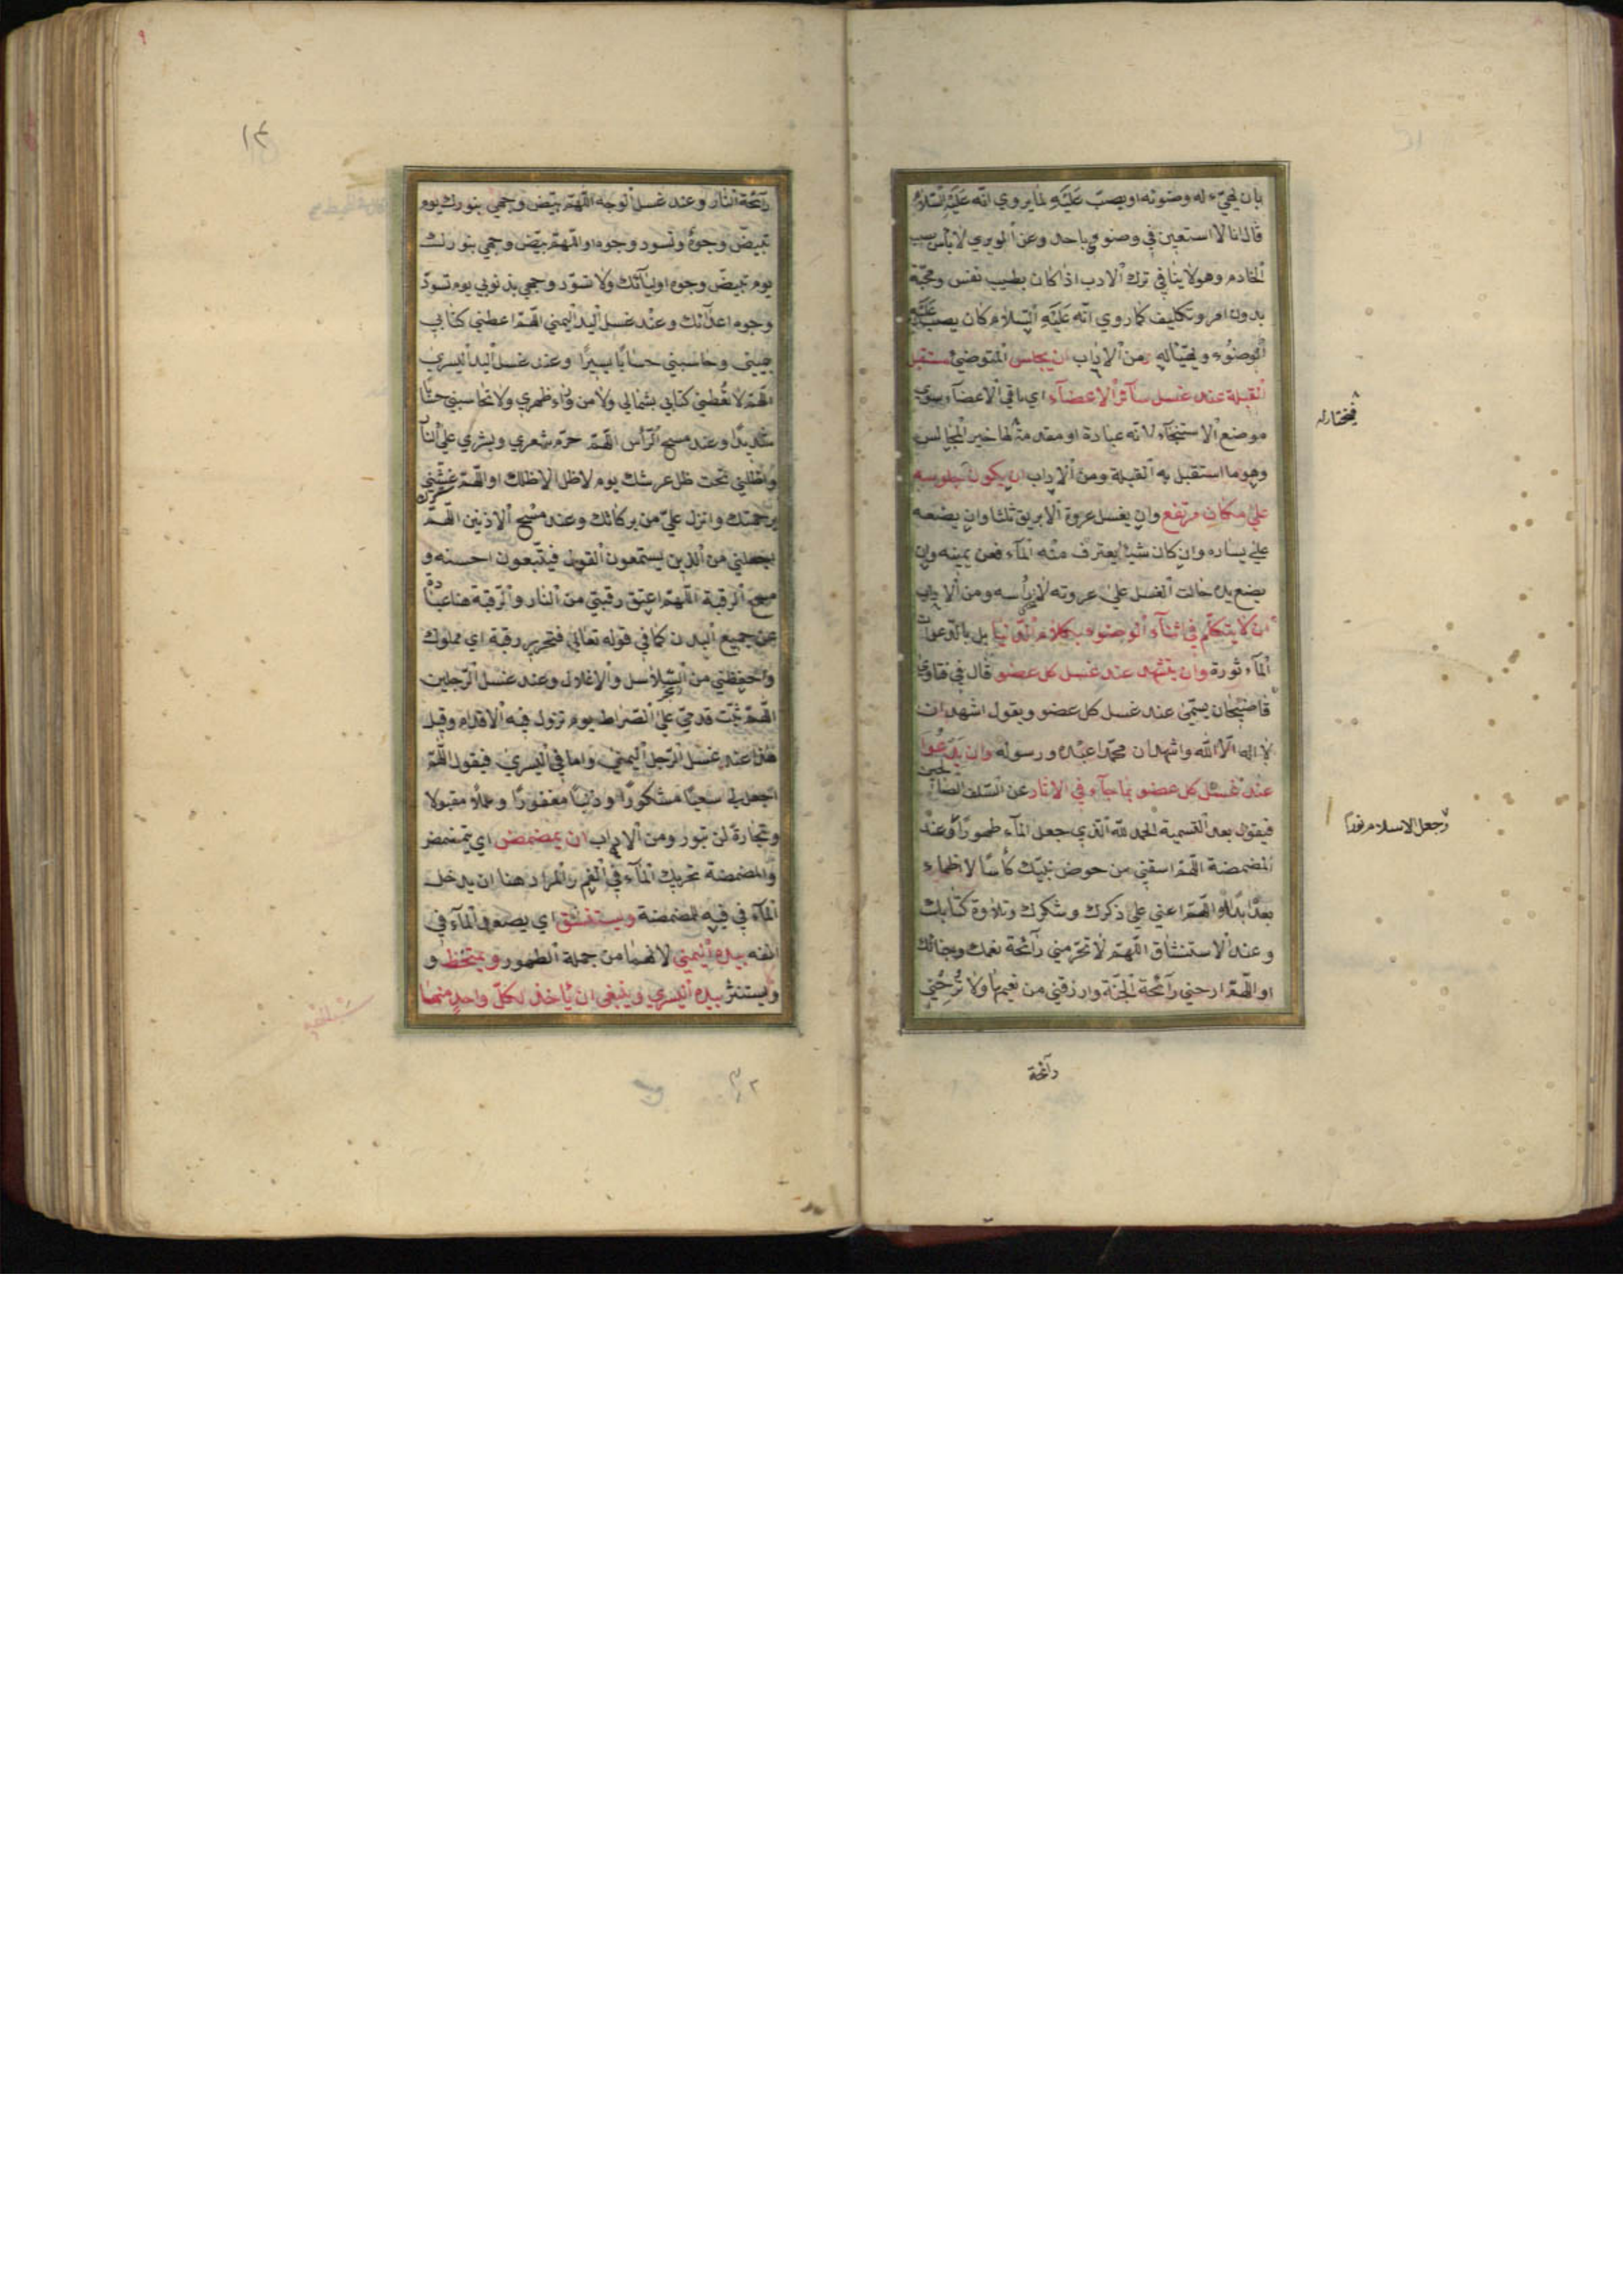 بان يهيّء له وضوئه او يصبّ عَلَيْهِ لما يروي انّه عَلَيْهِ السّلامُ
قال انا لا استعين في وضوئي باحد وعن الوبري لا بأس بصب
الخادم وهو لا ينافي ترك الادب اذا كان بطيب نفس ومحبّة
بدون امر وتكليف كما روي انّه عَلَيْهِ السّلام كان يصب عليه
الوضوء ويهيّأ له ومن الاداب ان يجلس المتوضئ مستقبل
القبلة عند غسل سآئر الاعضآء اي باقي الاعضآء سوى
موضع الاستنجآء لانه عبادة او مقدمة لها خير المجالس
فيختار له
وهو ما استقبل به القبلة ومن الاداب ان يكون جلوسه
على مكان مرتفع وان يغسل عروة الابريق ثلثا وان يضعه
على يساره وان كان شيئا يغترف منه المآء فعن يمينه وان
يضع يده حالت الغسل على عروته لا رأسه ومن الاداب
ان لا يتكلّم في اثنآء الوضوء بكلام الدّنيا بل بالدّعوات
المآءثورة وان يتشهد عند غسل كل عضو قال في فتاوى
قاضيخان يسمّى عند غسل كل عضو ويقول اشهد ان
لا اله الّا الله واشهد ان محمّدا عبده ورسوله وان يدعوا
عند غسل كل عضو بما جآء في الاثار عن السّلف الصالحين
فيقول بعد التسمية الحمد لله الّذي جعل المآء طهورًا وعند
وجعل الاسلام نورا
المضمضة اللّهمّ اسقني من حوض نبيّك كأسًا لا اظماء
بعدَه ابدًا او اللّهمّ اعني على ذكرك وشكرك وتلاوة كتابك
وعند الاستنشاق اللّهمّ لا تحرّمني رآئحة نعمك وجنانك
او اللّهمّ ارحني رآئحة الجنّة وارزقني من نعيمها ولا ترحني
رآئحة
١٢
رآئحة النار وعند غسل الوجه اللّهمّ بيّض وجهي بنورك يوم
تبيضّ وجوهٌ وتسود وجوه او اللّهمّ بيّض وجهي بنورك
يوم تبيضّ وجوه اوليآئك ولا تسوّد وجهي بذنوبي يوم تسودّ
وجوه اعدآئك وعند غسل اليد اليمنى اللّهمّ اعطني كتابي
بيميني وحاسبني حسابًا يسيرًا وعند غسل اليد اليسرى
اللّهمّ لا تعطني كتابي بشمالي ولا من ورآء ظهري ولا تحاسبني حسابًا
شديدًا وعند مسح الرّأس اللّهمّ حرّم شعري وبشري على النّار
واظلني تحت ظل عرشك يوم لا ظل الا ظلك او اللّهمّ غشّني
برحمتك وانزل عليّ من بركاتك وعند مسح الاذنين اللّهمّ
اجعلني من الذين يستمعون القول فيتّبعون احسنه و
مسح الرقبة اللّهمّ اعتق رقبتي من النار والرّقبة هنا عبارة
عن جميع البدن كما في قوله تعالى فتحرير رقبة اي مملوك
واحفظني من السّلاسل والاغلال وعند غسل الرّجلين
اللّهمّ ثبّت قدميّ على الصّراط يوم تزول فيه الاقدام وقيل
هذا عند غسل الرّجل اليمنى واما في اليسرى فيقول اللّهمّ
اجعل لي سعيًا مشكورًا وذنبًا مغفورًا وعملًا مقبولا
وتجارة لن تبور ومن الاداب ان يمضمض اي يتمضمض
والمضمضة تحريك المآء في الفم والمراد هنا ان يدخل
المآء في فيه للمضمضة ويستنشق اي يصعد المآء في
انفه بيده اليمنى لانهما من جملة الطهور ويمتخط و
ويستنثر بيده اليسرى وينبغي ان يأخذ لكلّ واحدٍ منهما